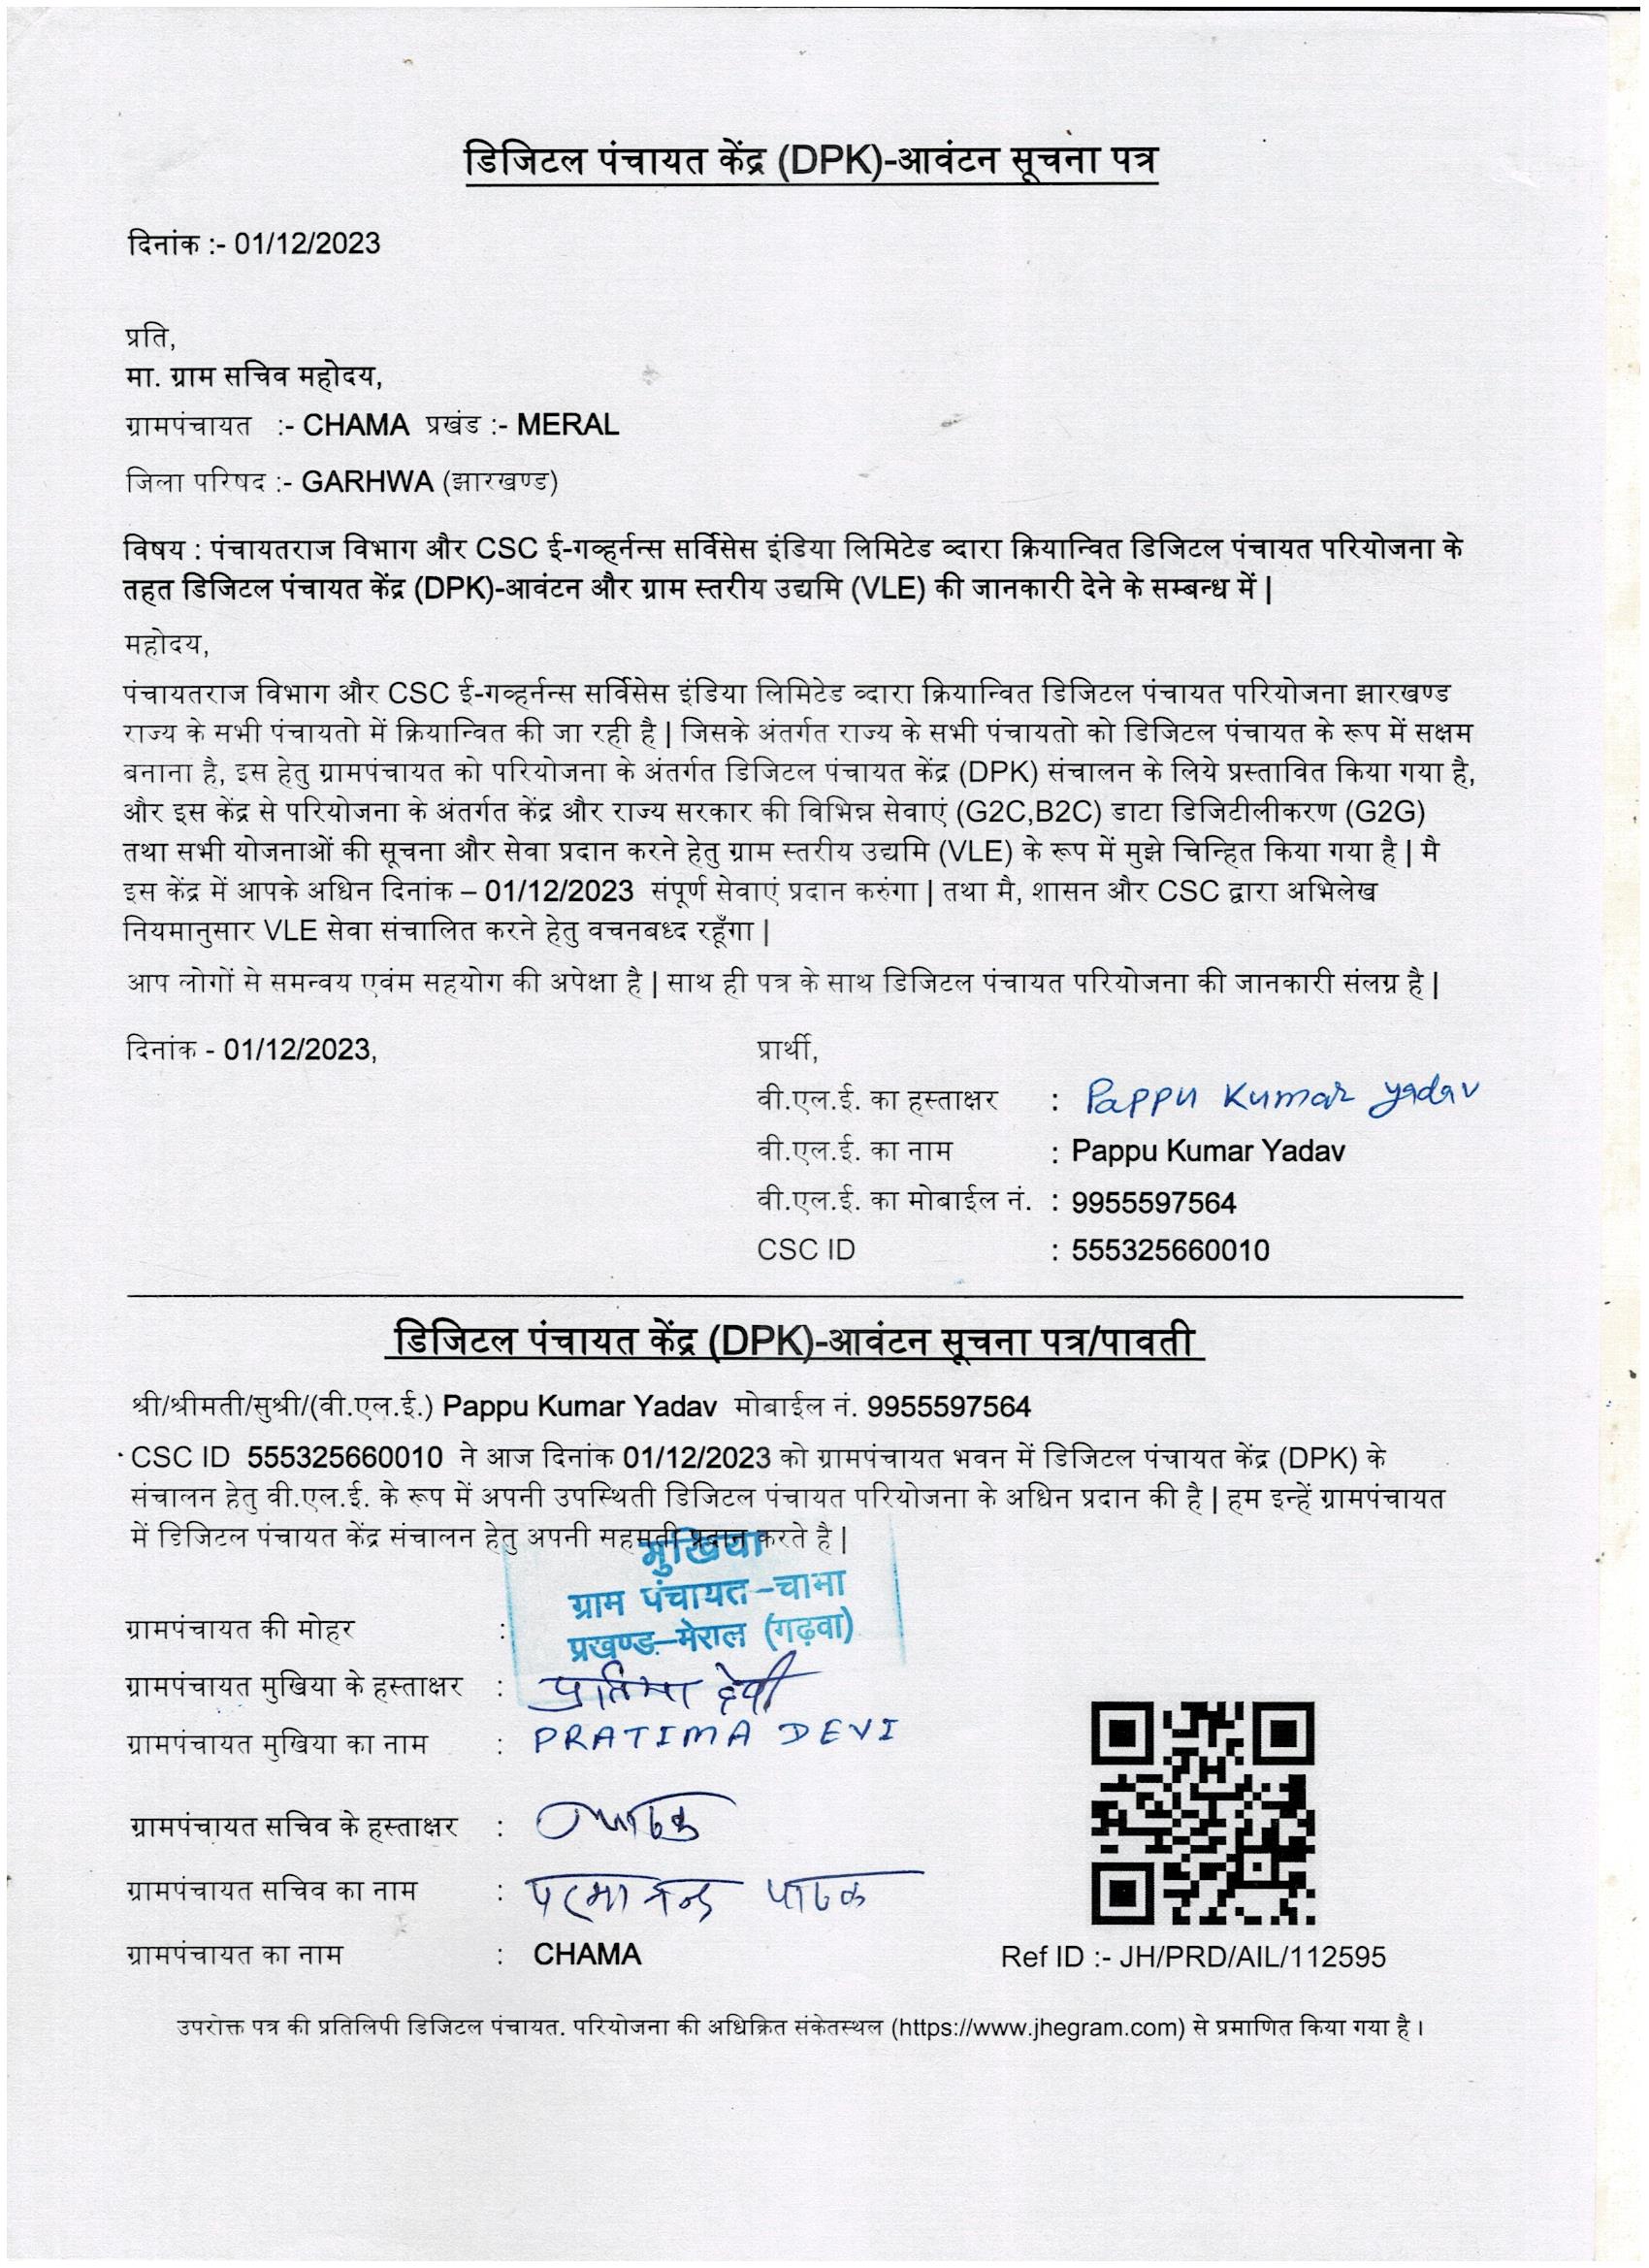 डिजिटल पंचायत केंद्र (DPK)-आवंटन सूचना पत्र
दिनांक :- 01/12/2023
प्रति,
मा. ग्राम सचिव महोदय,
ग्रामपंचायत :- CHAMA प्रखंड :- MERAL
जिला परिषद :- GARHWA (झारखण्ड)
विषय : पंचायतराज विभाग और CSC ई-गव्हर्नन्स सर्विसेस इंडिया लिमिटेड व्दारा क्रियान्वित डिजिटल पंचायत परियोजना के
तहत डिजिटल पंचायत केंद्र (DPK)-आवंटन और ग्राम स्तरीय उद्यमि (VLE) की जानकारी देने के सम्बन्ध में |
महोदय,
पंचायतराज विभाग और CSC ई-गव्हर्नन्स सर्विसेस इंडिया लिमिटेड व्दारा क्रियान्वित डिजिटल पंचायत परियोजना झारखण्ड
राज्य के सभी पंचायतो में क्रियान्वित की जा रही है | जिसके अंतर्गत राज्य के सभी पंचायतो को डिजिटल पंचायत के रूप में सक्षम
बनाना है, इस हेतु ग्रामपंचायत को परियोजना के अंतर्गत डिजिटल पंचायत केंद्र (DPK) संचालन के लिये प्रस्तावित किया गया है,
और इस केंद्र से परियोजना के अंतर्गत केंद्र और राज्य सरकार की विभिन्न सेवाएं (G2C,B2C) डाटा डिजिटीलीकरण (G2G)
तथा सभी योजनाओं की सूचना और सेवा प्रदान करने हेतु ग्राम स्तरीय उद्यमि (VLE) के रूप में मुझे चिन्हित किया गया है | मै
इस केंद्र में आपके अधिन दिनांक – 01/12/2023 संपूर्ण सेवाएं प्रदान करुंगा | तथा मै, शासन और CSC द्वारा अभिलेख
नियमानुसार VLE सेवा संचालित करने हेतु वचनबध्द रहूँगा |
आप लोगों से समन्वय एवंम सहयोग की अपेक्षा है | साथ ही पत्र के साथ डिजिटल पंचायत परियोजना की जानकारी संलग्न है |
दिनांक - 01/12/2023,
प्रार्थी,
वी.एल.ई. का हस्ताक्षर : Pappu Kumar yadav
वी.एल.ई. का नाम : Pappu Kumar Yadav
वी.एल.ई. का मोबाईल नं. : 9955597564
CSC ID : 555325660010
डिजिटल पंचायत केंद्र (DPK)-आवंटन सूचना पत्र/पावती
श्री/श्रीमती/सुश्री/(वी.एल.ई.) Pappu Kumar Yadav मोबाईल नं. 9955597564
CSC ID 555325660010 ने आज दिनांक 01/12/2023 को ग्रामपंचायत भवन में डिजिटल पंचायत केंद्र (DPK) के
संचालन हेतु वी.एल.ई. के रूप में अपनी उपस्थिती डिजिटल पंचायत परियोजना के अधिन प्रदान की है | हम इन्हें ग्रामपंचायत
में डिजिटल पंचायत केंद्र संचालन हेतु अपनी सहमती प्रदान करते है |
मुखिया
ग्राम पंचायत–चामा
प्रखण्ड–मेराल (गढ़वा)
ग्रामपंचायत की मोहर :
ग्रामपंचायत मुखिया के हस्ताक्षर : प्रतिमा देवी
ग्रामपंचायत मुखिया का नाम : PRATIMA DEVI
ग्रामपंचायत सचिव के हस्ताक्षर :
ग्रामपंचायत सचिव का नाम : परमानन्द पाठक
ग्रामपंचायत का नाम : CHAMA
Ref ID :- JH/PRD/AIL/112595
उपरोक्त पत्र की प्रतिलिपी डिजिटल पंचायत. परियोजना की अधिक्रित संकेतस्थल (https://www.jhegram.com) से प्रमाणित किया गया है ।